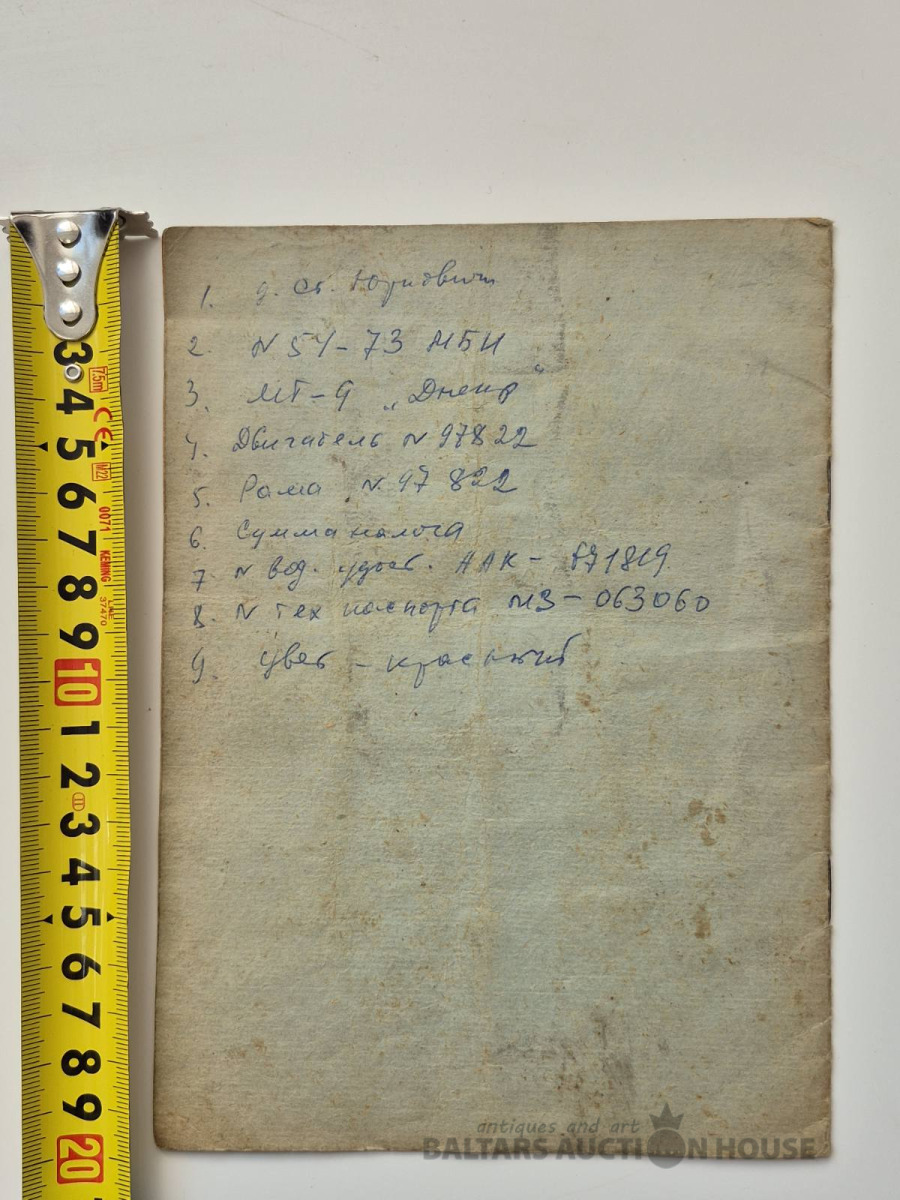 1. д. Ст. Юрковичи
2 N 54-73 МБИ
3. МТ-9 „Днепр"
4. Двигатель N 97822
5. Рама N 97 822
6. Сумма налога
7 N вод. удост. ААК - 871819
8. N тех паспорта МЗ-063060
9. цвет - красный
3
4
5
6
7
8
9
10
1
2
3
4
5
6
7
8
9
20
7.5m
CE
M22
0071
KEMING
37470
LINE
antiques and art
BALTARS AUCTION HOUSE